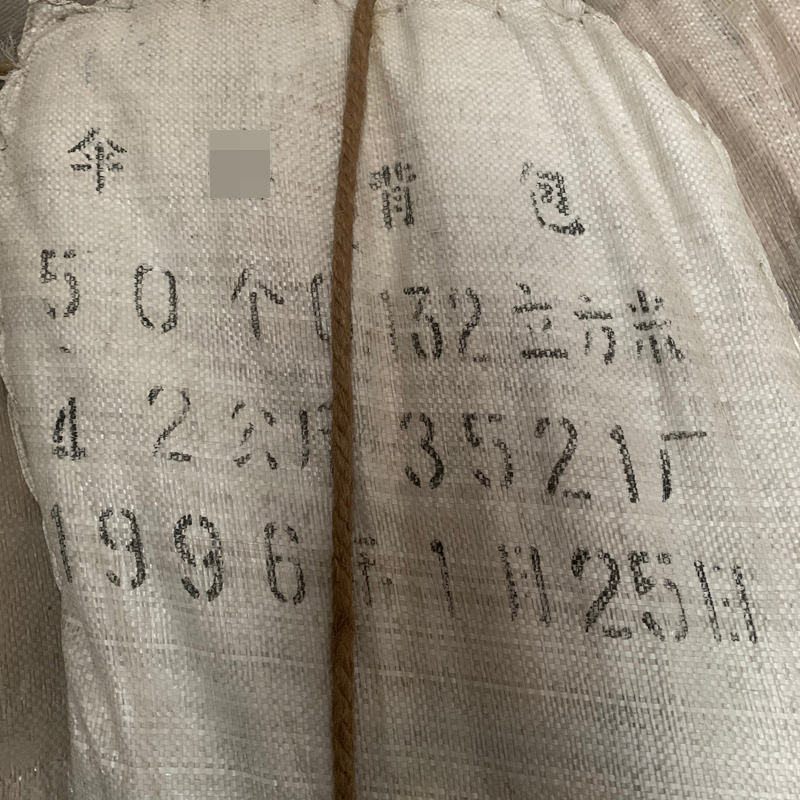 伞 背包
50个0 132立方米
42公斤 3521厂
1996年1月25日